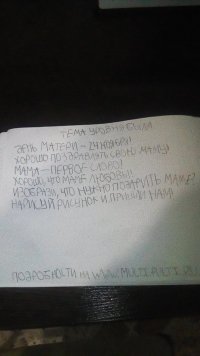 ТЕМА УРОВНЯ БЫЛИ
ДЕНЬ МАТЕРИ – 24 НОЯБРЯ!
ХОРОШО ПОЗДРАВИТЬ СВОЮ МАМУ!
МАМА – ПЕРВОЕ СЛОВО!
ХОРОШО, ЧТО МАМЕ ЛЮБОВЫ!
ИЗОБРАЗИ, ЧТО НУЖНО ПОДАРИТЬ МАМЕ?
НАРИСУЙ РИСУНОК И ПРИШЛИ НАМ!
ПОДРОБНОСТИ НА WWW.MULTI-PULTI.RU